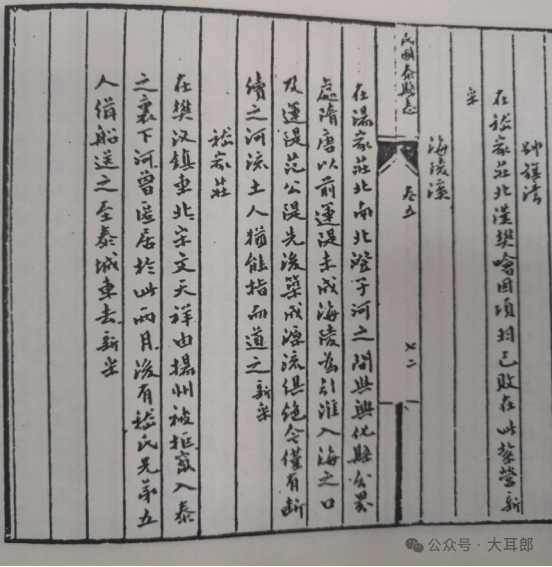 在嵇家莊北漢樊噲因項羽已敗在此紮營新
采
海陵溪
民國泰縣志
卷五
七二
在湯家莊北南北澄子河之間與興化縣分界
處隋唐以前運隄未成海陵為引淮入海之口
及運隄范公隄先後築成源流俱絕今僅有斷
續之河流土人猶能指而道之新采
嵇家莊
在樊汊鎮東北宋文天祥由揚州被拒竄入泰
之裏下河曾匿居於此兩月後有嵇氏兄弟五
人僱船送之至泰城東去新采
公众号·大耳郎